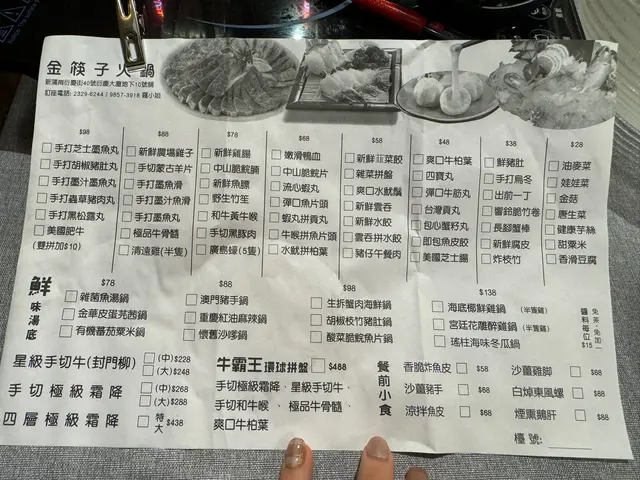 金筷子火鍋
新蒲崗衍慶街40號衍慶大廈地下10號舖
訂座電話: 2329-6244 / 9857-3918 羅小姐
$98
手打芝士墨魚丸
手打胡椒豬肚丸
手打墨汁墨魚丸
手打蟲草豬肉丸
手打黑松露丸
美國肥牛
(雙拼加$10)
$88
新鮮農場雞子
手切蒙古羊片
手打墨魚滑
手打墨汁魚滑
手打墨魚丸
極品牛骨髓
清遠雞(半隻)
$78
新鮮雞腸
中山脆鯇腩
新鮮魚膘
野生竹笙
和牛黃牛喉
手切黑豚肉
廣島蠔(5隻)
$68
嫩滑鴨血
中山脆鯇片
流心蝦丸
彈口魚片頭
蝦丸拼貢丸
牛喉拼魚片頭
水魷拼柏葉
$58
新鮮韮菜餃
雜菜拼盤
爽口水魷鬚
新鮮雲吞
新鮮水餃
雲吞拼水餃
豬仔午餐肉
$48
爽口牛柏葉
四寶丸
彈口牛筋丸
台灣貢丸
包心蟹籽丸
即包魚皮餃
美國芝士腸
$38
鮮豬肚
手打烏冬
出前一丁
響鈴脆竹卷
長腳蟹棒
新鮮腐皮
炸枝竹
$28
油麥菜
娃娃菜
金菇
唐生菜
健康芋絲
甜粟米
香滑豆腐
鮮味湯底
$78
雜菌魚湯鍋
金華皮蛋芫茜鍋
有機番茄粟米鍋
$88
澳門豬手鍋
重慶紅油麻辣鍋
懷舊沙嗲鍋
$98
生拆蟹肉海鮮鍋
胡椒枝竹豬肚鍋
酸菜脆鯇魚片鍋
$138
海底椰鮮雞鍋 (半隻雞)
宮廷花雕醉雞鍋 (半隻雞)
瑤柱海味冬瓜鍋
免茶·免加一
醬料每位$15
星級手切牛(封門柳) (中)$228 (大)$248
手切極級霜降 (中)$268 (大)$288
四層極級霜降 特大 $438
牛霸王環球拼盤 $488
手切極級霜降、星級手切牛、
手切和牛喉 、極品牛骨髓、
爽口牛柏葉
餐前小食
香脆炸魚皮 $58
沙薑豬手 $68
涼拌魚皮 $68
沙薑雞脚 $68
白焯東風螺 $88
煙熏鵝肝 $88
檯號: